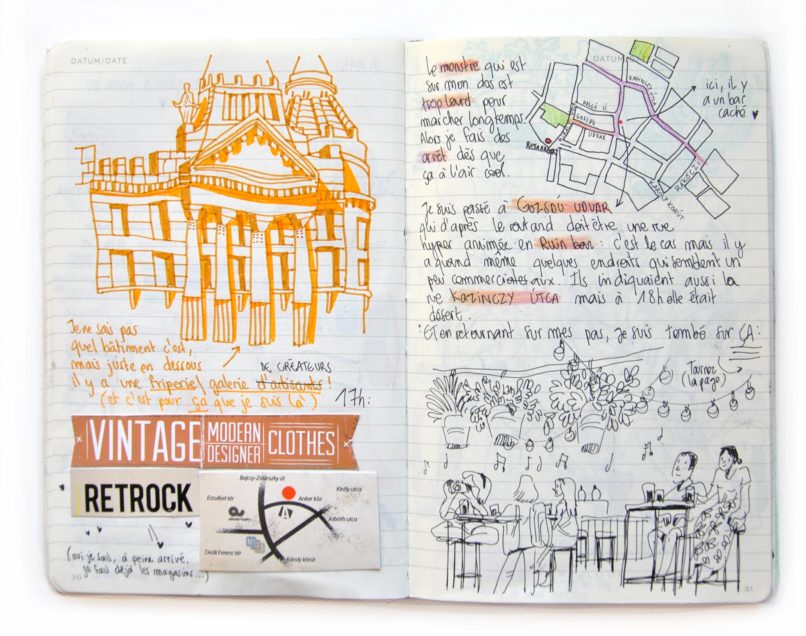 DATUM/DATE
Je ne sais pas
quel bâtiment c'est,
mais juste en dessous
DE CRÉATEURS
il y a une friperie/galerie d'artisants !
(et c'est pour ça que je suis là)
17h:
VINTAGE MODERN DESIGNER CLOTHES
RETROCK
Bajcsy-Zsilinszky út
Erzsébet tér
Király utca
Anker köz
Asbóth utca
Deák Ferenc tér
Károly körút
(oui je sais, à peine arrivé
je fais déjà les magasins...)
30
DATUM/DATE
Le monstre qui est
sur mon dos est
trop lourd pour
marcher longtemps.
Alors je fais des
arrêt dès que
ça à l'air cool.
KAZINCZY UTCA
GOZSDU
UDVAR
RÁKÓCZI
KÁROLY KÖRÚT
ici, il y
a un bar
caché
Je suis passé à GOZSDÚ UDVAR
qui d'après le routard doit être une rue
hyper animée en Ruin bar : c'est le cas mais il y
a quand même quelques endroits qui semblent un
peu commerciales aux. Ils indiquaient aussi la
rue KAZINCZY ÚTCA mais à 18h elle était
désert.
Et en retournant sur mes pas, je suis tombé sur ÇA:
Tournez
(la page)
31